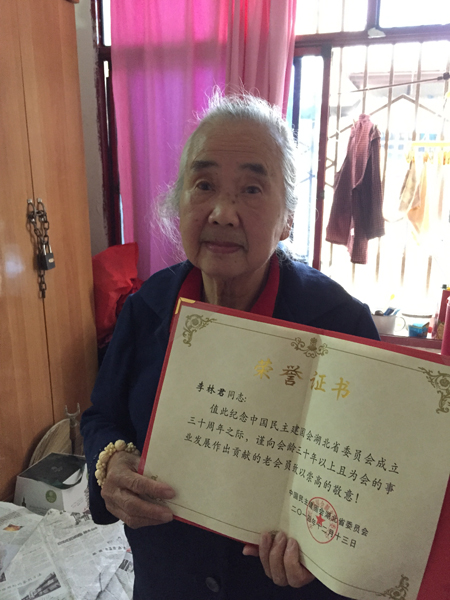 荣誉证书
李林君同志:
值此纪念中国民主建国会湖北省委员会成立
三十周年之际,谨向会龄三十年以上且为会的事
业发展作出贡献的老会员致以崇高的敬意!
中国民主建国会湖北省委员会
二〇一五年十一月十三日